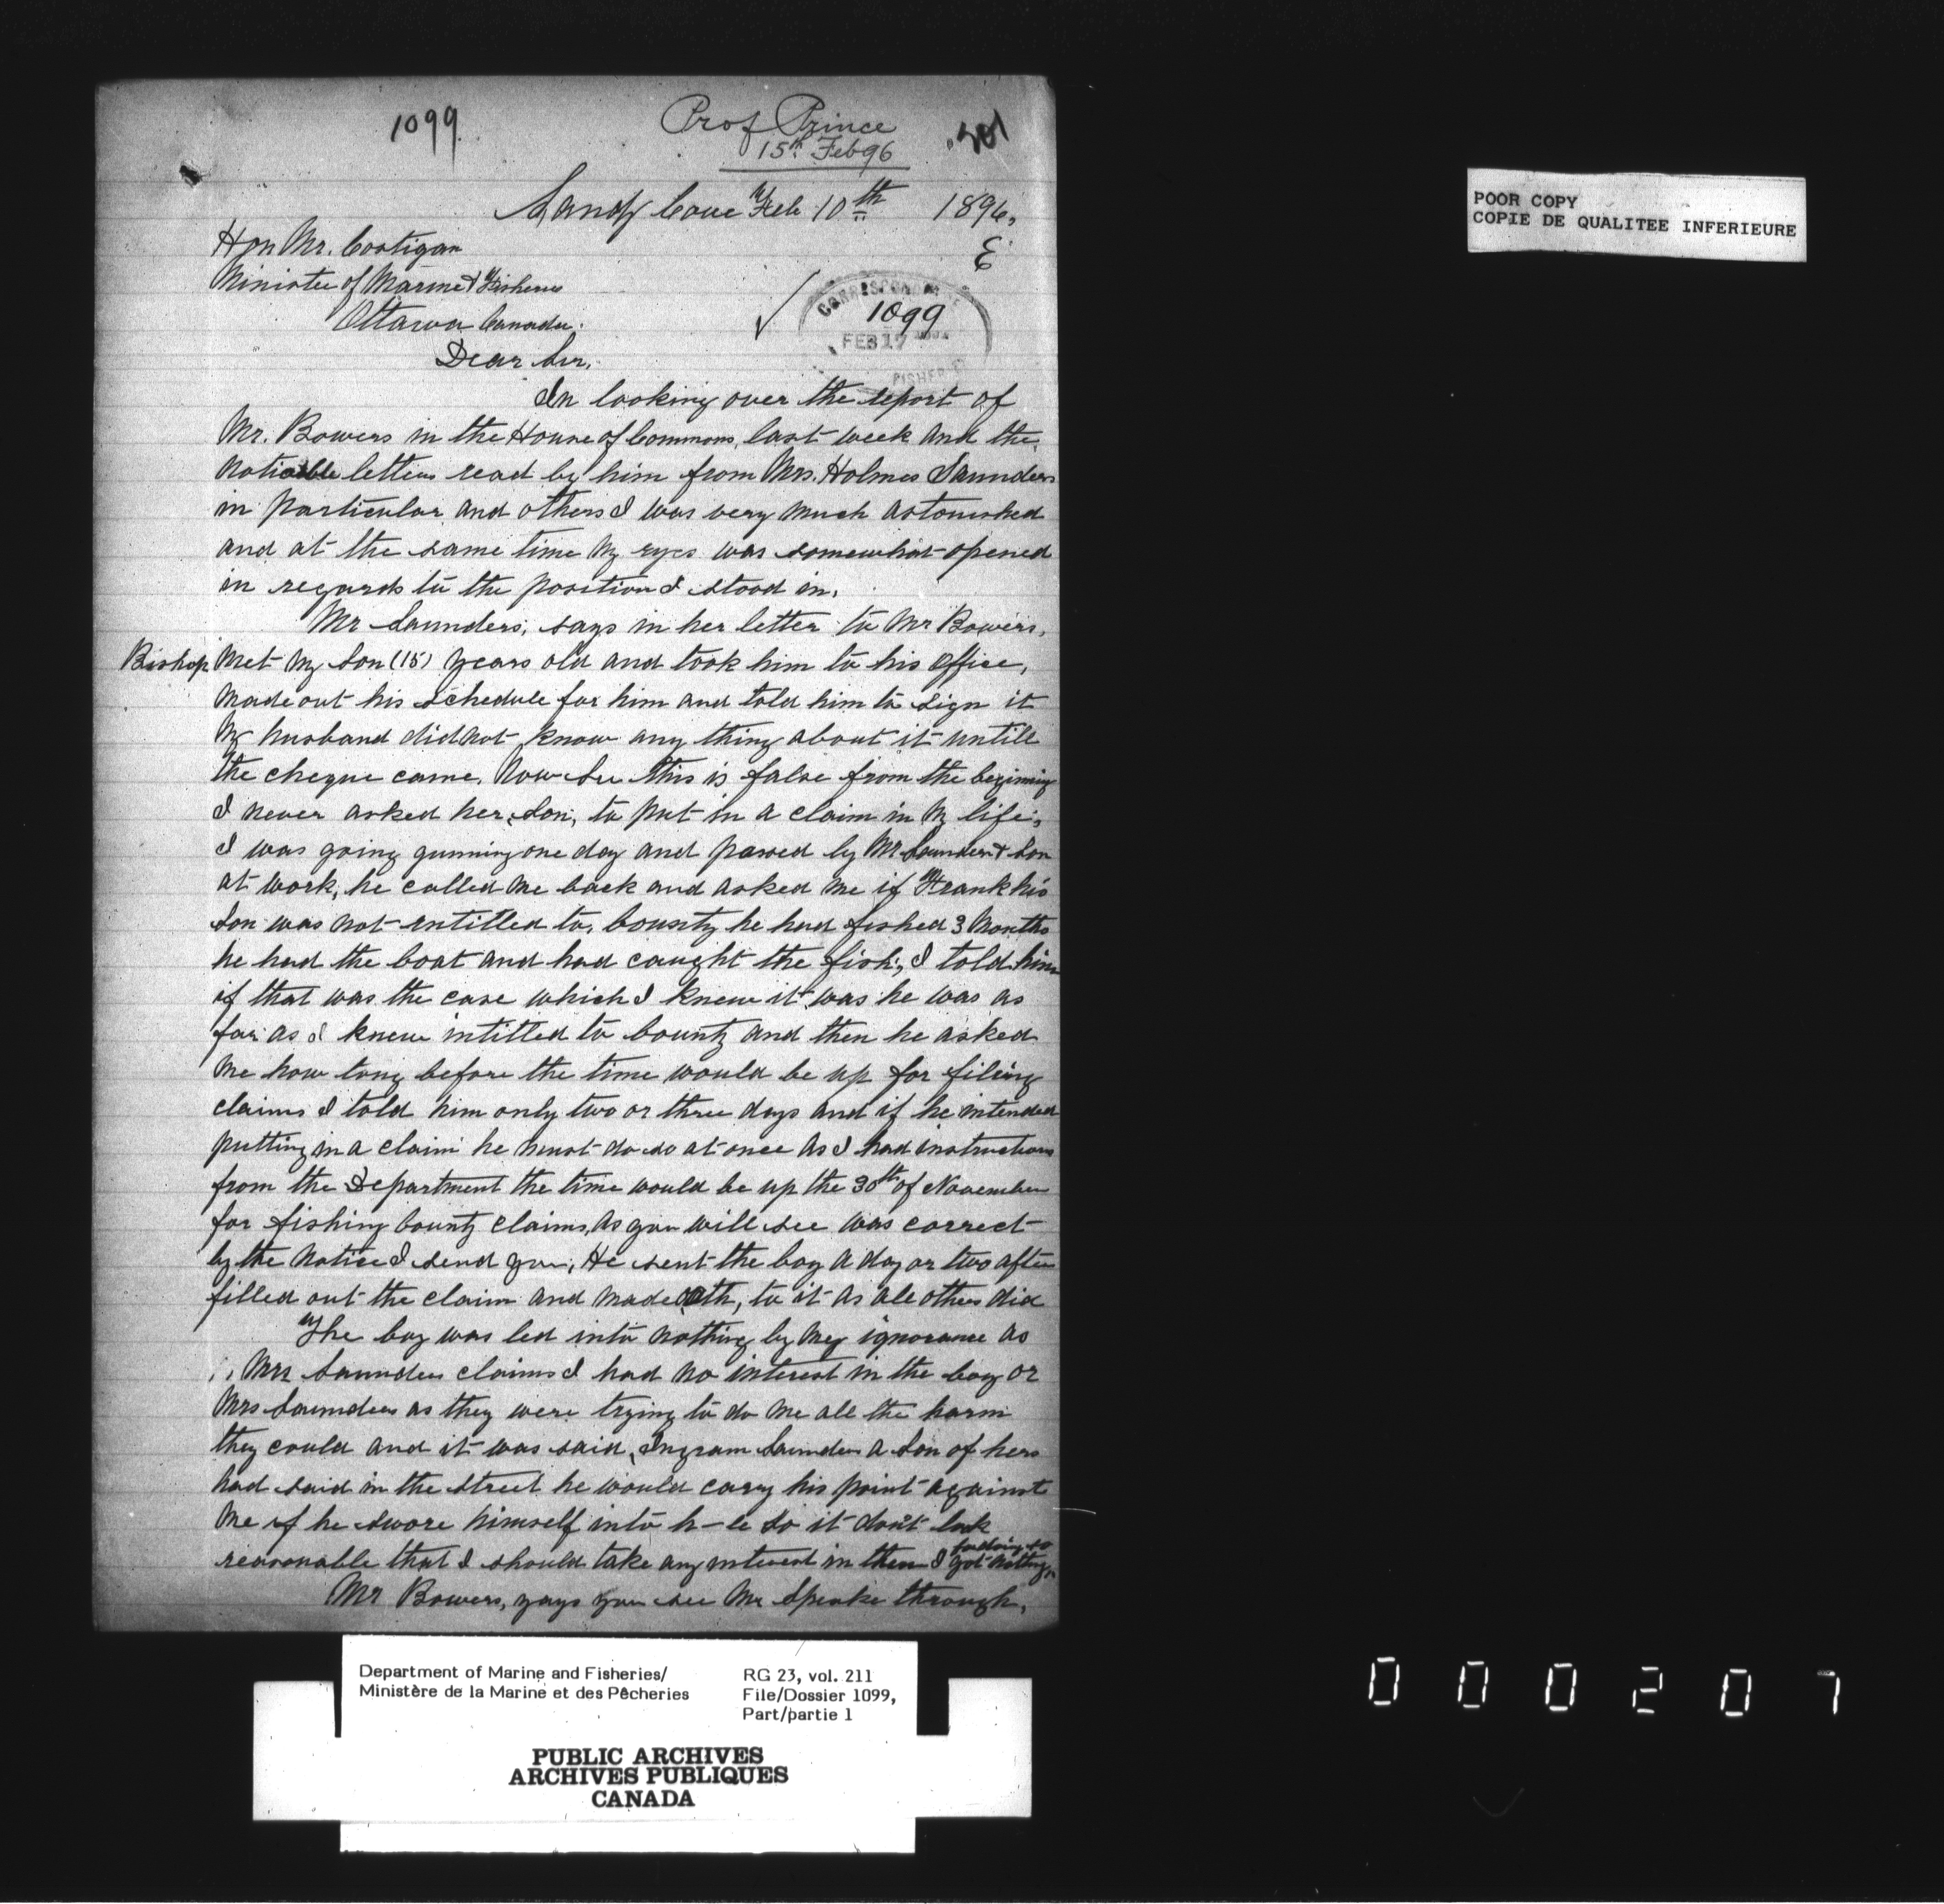 1099
Prof Prince
15th Feb 96
201
Sandy Cove Feb 10th 1896,
Hon Mr. Costigan
E
Minister of Marine & Fisheries
Ottawa Canada.
CORRESPONDENCE
1099
FEB 17
FISHER
Dear Sir,
In looking over the report of
Mr. Bowers in the House of Commons, last week and the
noticable letters read by him from Mrs. Holmes Saunders
in particular and others I was very much astonished
and at the same time my eyes was somewhat opened
in regards to the position I stood in.
Mr Saunders, says in her letter to Mr Bowers,
Bishop Met my Son (15) years old and took him to his office,
made out his schedule for him and told him to sign it
My husband did not know any thing about it untill
the cheque came. Now Sir this is false from the beginning
I never asked her, Son, to put in a claim in my life,
I was going gunning one day and passed by Mr. Saunders & Son
at work, he called me back and asked me if Frank his
Son was not entitled to, bounty he had fished 3 Months
he had the boat and had caught the fish, I told him
if that was the case which I knew it was he was as
far as I knew intitled to bounty and then he asked
me how long before the time would be up for filing
claims I told him only two or three days and if he intended
putting in a claim he must do so at once As I had instructions
from the Department the time would be up the 30th of November
for fishing bounty claims, As you will see was correct
by the notice I send you, He sent the boy a day or two after
filled out the claim and made oath, to it as all others did
The boy was led into nothing by my ignorance as
Mrs Saunders claims I had no interest in the boy or
Mrs Saunders as they were trying to do me all the harm
they could and it was said, Ingram Saunders a Son of hers
had said in the street he would carry his point against
me if he swore himself into h-le so it don't look
reasonable that I should take any interest in them I got nothing
for doing so
Mr Bowers, says you see Mr Speake through,
POOR COPY
COPIE DE QUALITEE INFERIEURE
Department of Marine and Fisheries/
Ministère de la Marine et des Pêcheries
RG 23, vol. 211
File/Dossier 1099,
Part/partie 1
PUBLIC ARCHIVES
ARCHIVES PUBLIQUES
CANADA
000207